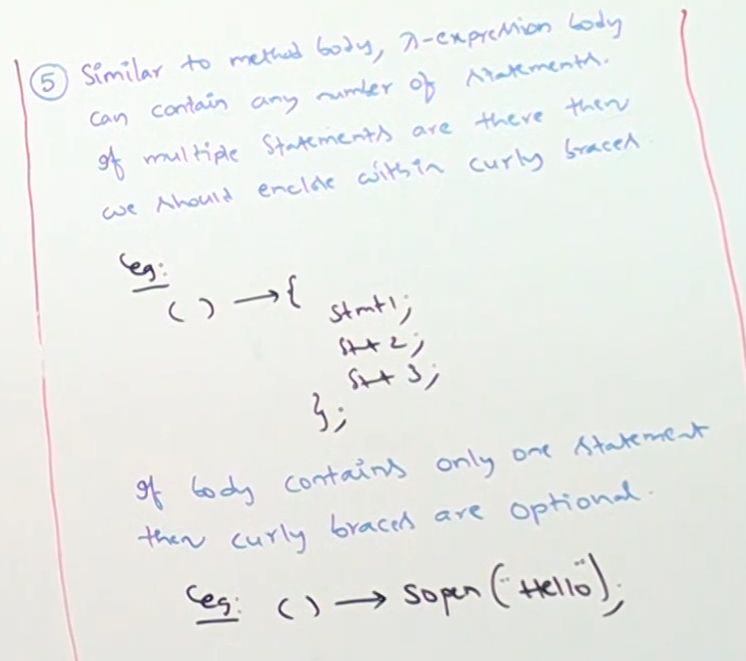 ⑤ Similar to method body, λ-expression body
can contain any number of statements.
If multiple statements are there then
we should enclose within curly braces.
eg:
( ) → {
stmt1;
stt 2;
stt 3;
};
If body contains only one statement
then curly braces are optional.
eg: ( ) → sopln("Hello");